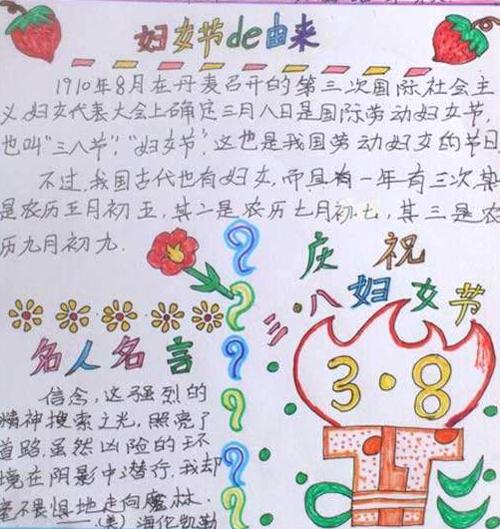 妇女节de由来
1910年8月在丹麦召开的第三次国际社会主
义妇女代表大会上确定三月八日是国际劳动妇女节,
也叫"三八节","妇女节".这也是我国劳动妇女的节日
不过,我国古代也有妇女,而且有一年有三次,其
是农历三月初五,其二是农历七月初七,其三是农
历九月初九.
庆祝
三·八妇女节
名人名言
3·8
信念,这强烈的
精神搜索之光,照亮了
道路,虽然凶险的环
境在阴影中潜行,我却
毫不畏惧地走向魔林.
——(美)海伦凯勒